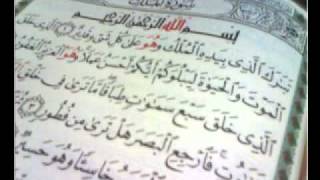 سُورَةُ الْمُلْكِ
بِسْمِ اللهِ الرَّحْمٰنِ الرَّحِيمِ
تَبَارَكَ الَّذِي بِيَدِهِ الْمُلْكُ وَهُوَ عَلَى كُلِّ شَيْءٍ قَدِيرٌ
الْمَوْتَ وَالْحَيَوةَ لِيَبْلُوَكُمْ أَيُّكُمْ أَحْسَنُ عَمَلًا وَهُوَ الْعَزِيزُ الْغَفُورُ
الَّذِي خَلَقَ سَبْعَ سَمَوَتٍ طِبَاقًا مَا تَرَى فِي خَلْقِ
فَارْجِعِ الْبَصَرَ هَلْ تَرَى مِنْ فُطُورٍ ٣
خَاسِئًا وَهُوَ حَسِيرٌ